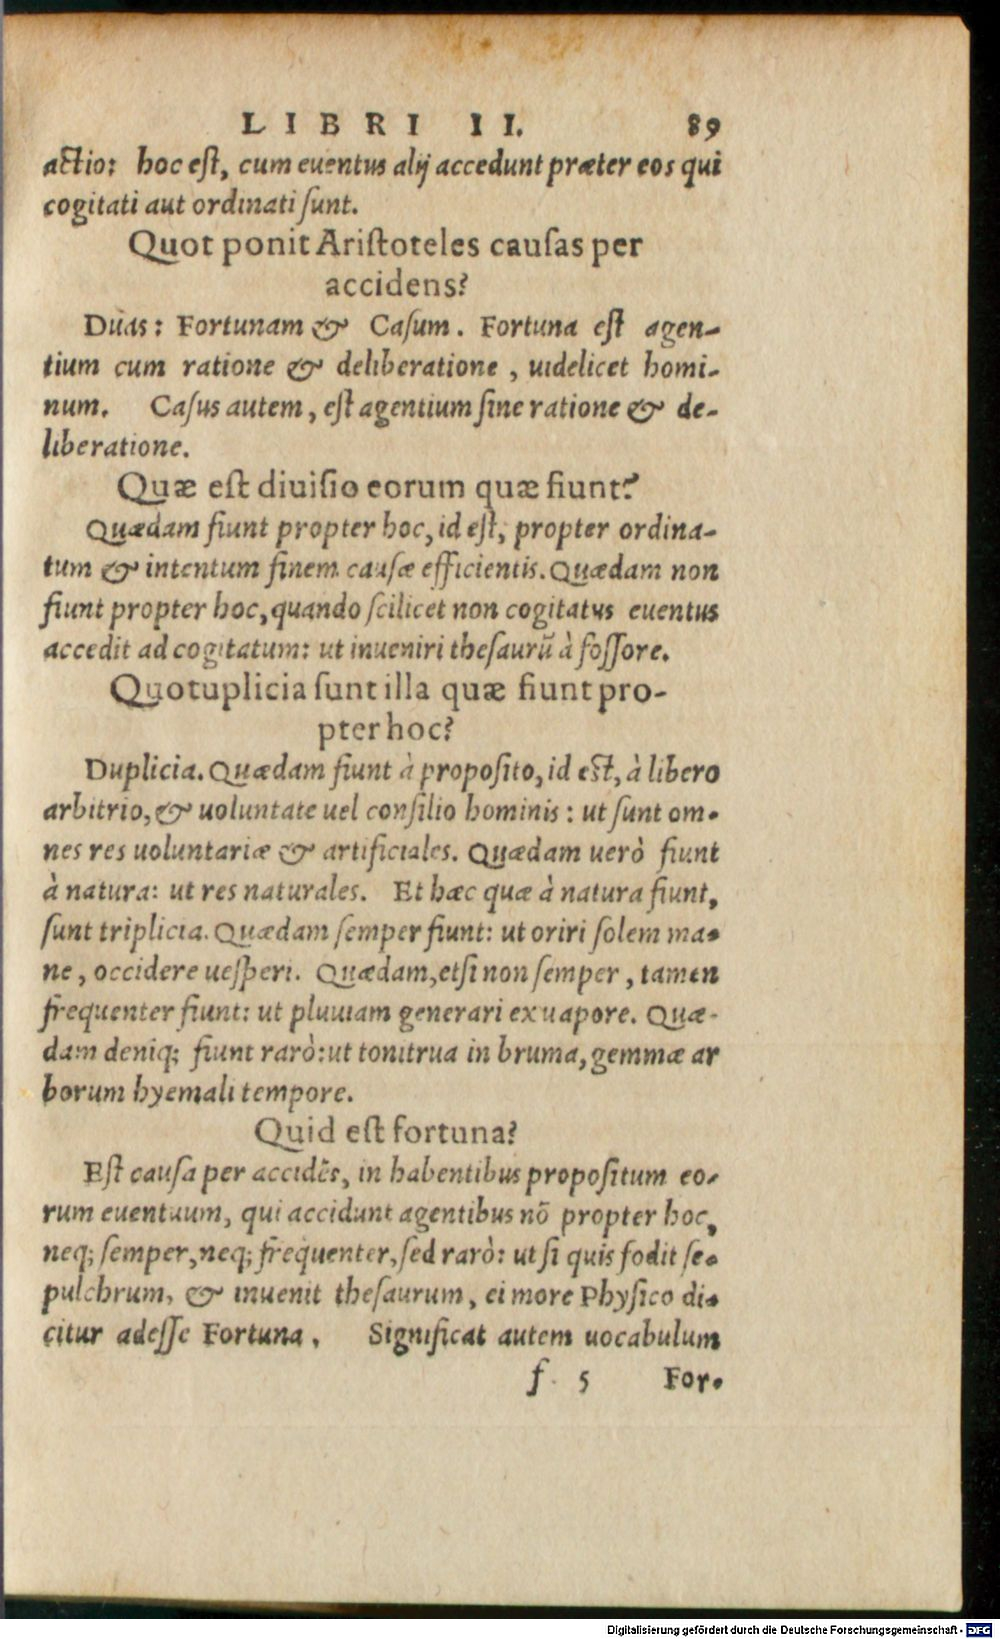 LIBRI II. 89
actio: hoc est, cum euentus alij accedunt præter eos qui
cogitati aut ordinati sunt.
Quot ponit Aristoteles causas per
accidens?
Duas: Fortunam & Casum. Fortuna est agen-
tium cum ratione & deliberatione, uidelicet homi-
num. Casus autem, est agentium sine ratione & de-
liberatione.
Quæ est diuisio eorum quæ fiunt?
Quædam fiunt propter hoc, id est, propter ordina-
tum & intentum finem causæ efficientis. Quædam non
fiunt propter hoc, quando scilicet non cogitatus euentus
accedit ad cogitatum: ut inueniri thesaurū à fossore.
Quotuplicia sunt illa quæ fiunt pro-
pter hoc?
Duplicia. Quædam fiunt à proposito, id est, à libero
arbitrio, & uoluntate uel consilio hominis: ut sunt om-
nes res uoluntariæ & artificiales. Quædam uerò fiunt
à natura: ut res naturales. Et hæc quæ à natura fiunt,
sunt triplicia. Quædam semper fiunt: ut oriri solem ma-
ne, occidere uesperi. Quædam, etsi non semper, tamen
frequenter fiunt: ut pluuiam generari ex uapore. Quæ-
dam deniq; fiunt rarò: ut tonitrua in bruma, gemmæ ar
borum hyemali tempore.
Quid est fortuna?
Est causa per accidēs, in habentibus propositum eo-
rum euentuum, qui accidunt agentibus nō propter hoc,
neq; semper, neq; frequenter, sed rarò: ut si quis fodit se-
pulchrum, & inuenit thesaurum, ei more Physico di-
citur adesse Fortuna. Significat autem uocabulum
f 5 For-
Digitalisierung gefördert durch die Deutsche Forschungsgemeinschaft - DFG